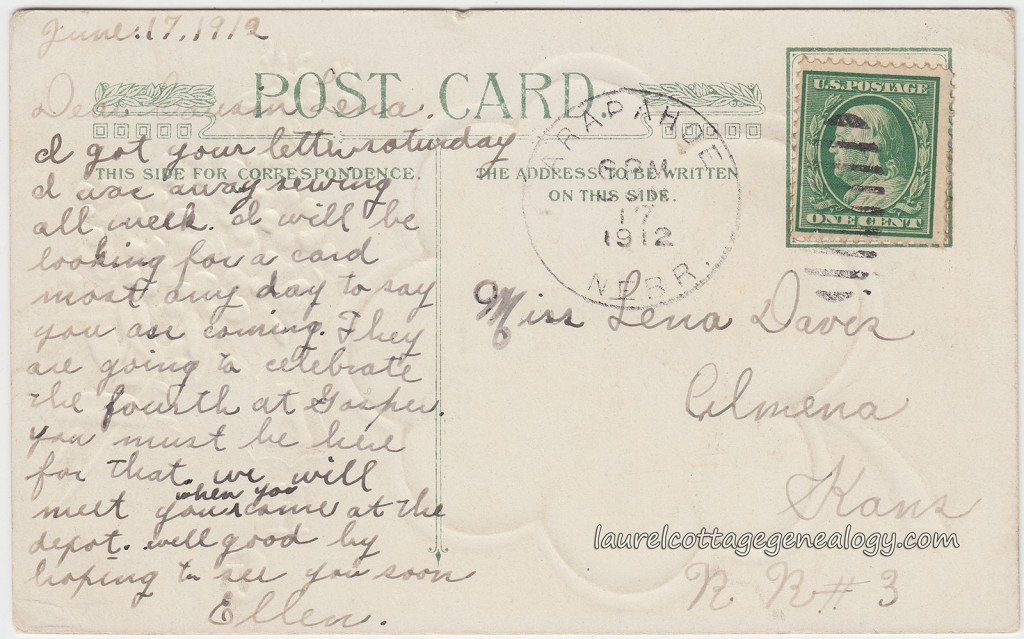 June. 17, 1912
POST CARD
Dear Cousin Lena.
I got your letter saturday
THIS SIDE FOR CORRESPONDENCE.
I was away sewing
all week. I will be
looking for a card
most any day to say
you are coming. They
are going to celebrate
the fourth at Gosper.
you must be here
for that. we will
meet you when you come at the
depot. will good by
hoping to see you soon
Ellen.
THE ADDRESS TO BE WRITTEN
ON THIS SIDE.
ARAPAHOE
6 PM
17
1912
NEBR.
U.S. POSTAGE
ONE CENT
Miss Lena Davis
Almena
Kans
R. R # 3
laurelcottagegenealogy.com